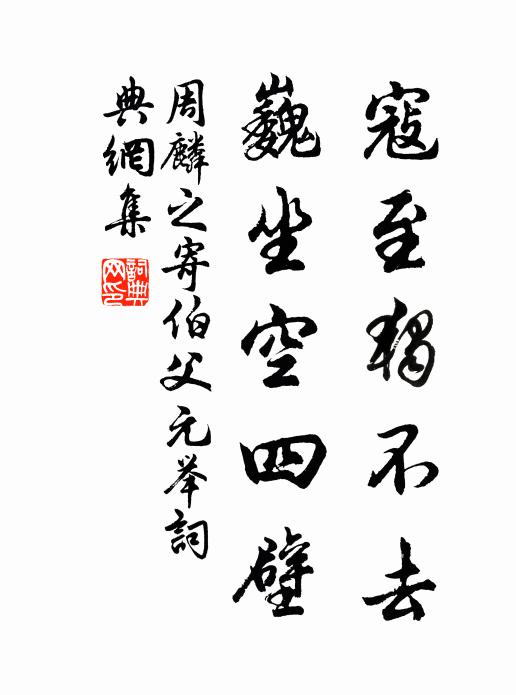 寇至獨不去
巍坐空四壁
周麟之寄伯父元举詞
典網集
詞典网印